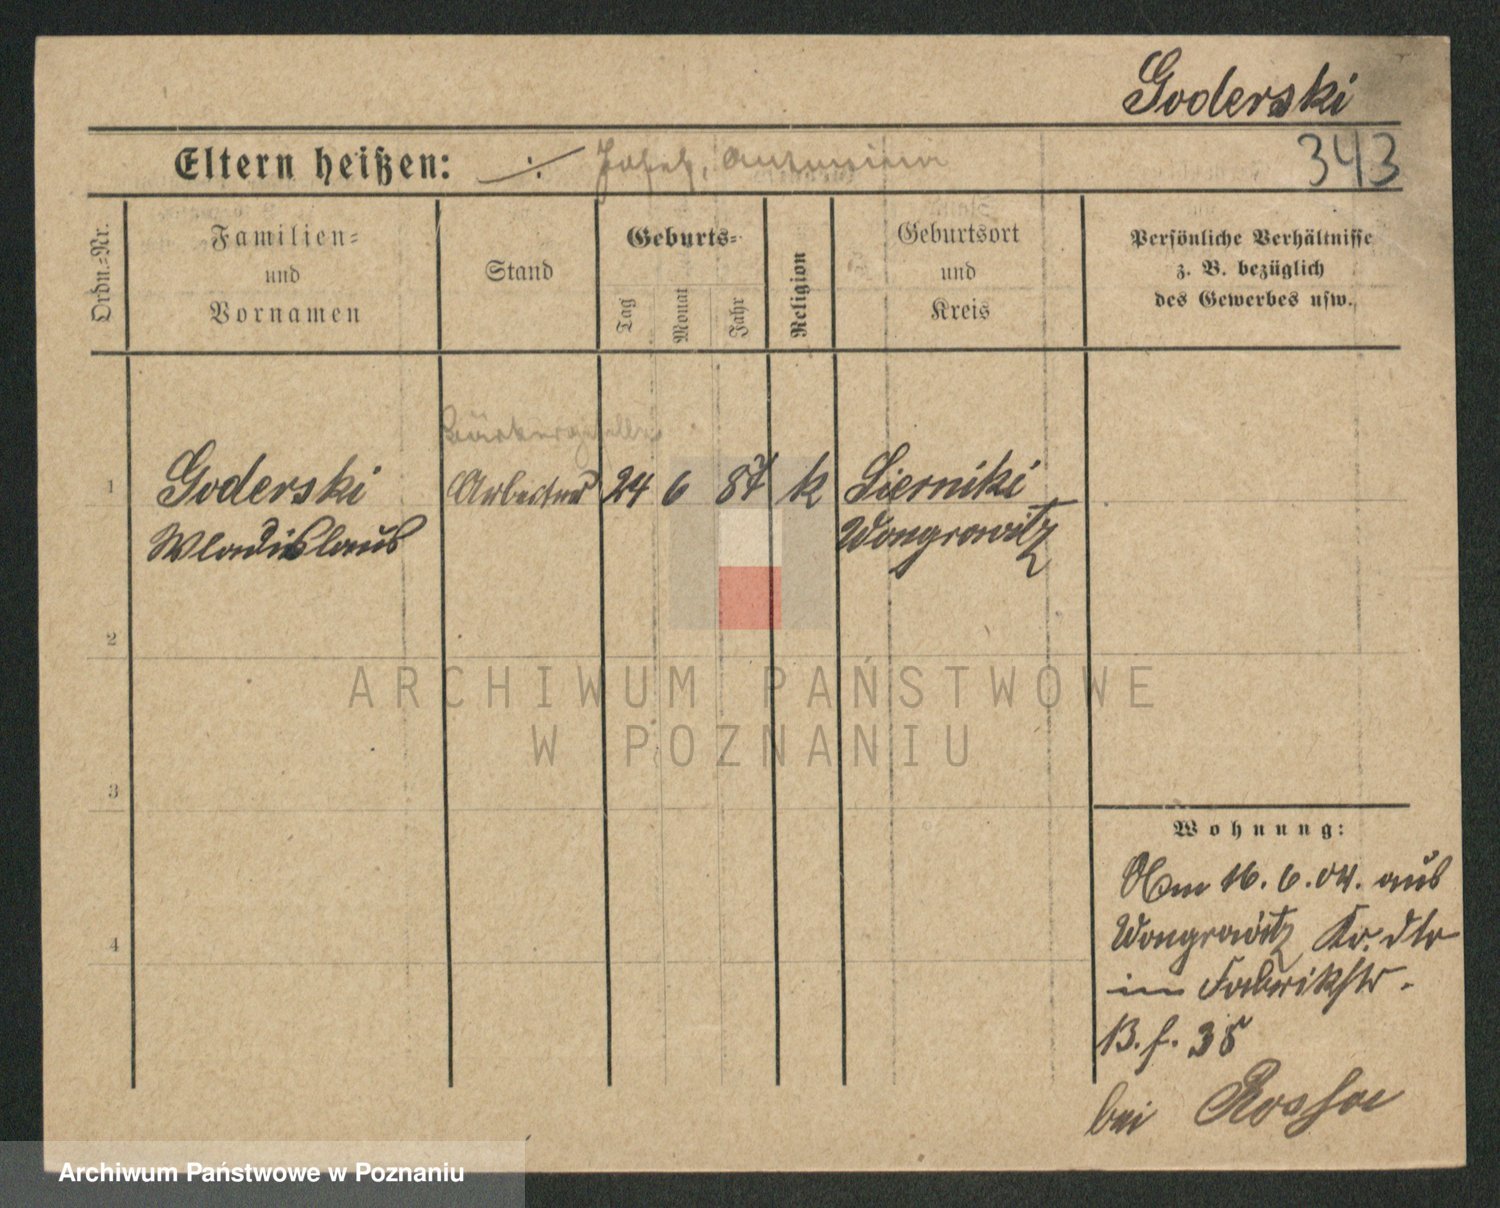 Goderski
Eltern heißen: ·/. Josef, Antonina
343
Ordn.=Nr.
Familien=
und
Vornamen
Stand
Geburts=
Tag
Monat
Jahr
Religion
Geburtsort
und
Kreis
Persönliche Verhältnisse
z. B. bezüglich
des Gewerbes usw.
1
Goderski
Wladislaus
Arbeiter
24
6
87
k
Sierniki
Wongrowitz
2
3
4
ARCHIWUM PAŃSTWOWE
W POZNANIU
Wohnung:
16. 6. 04. aus
Wongrowitz
im Fabrikstr.
38
bei
Archiwum Państwowe w Poznaniu